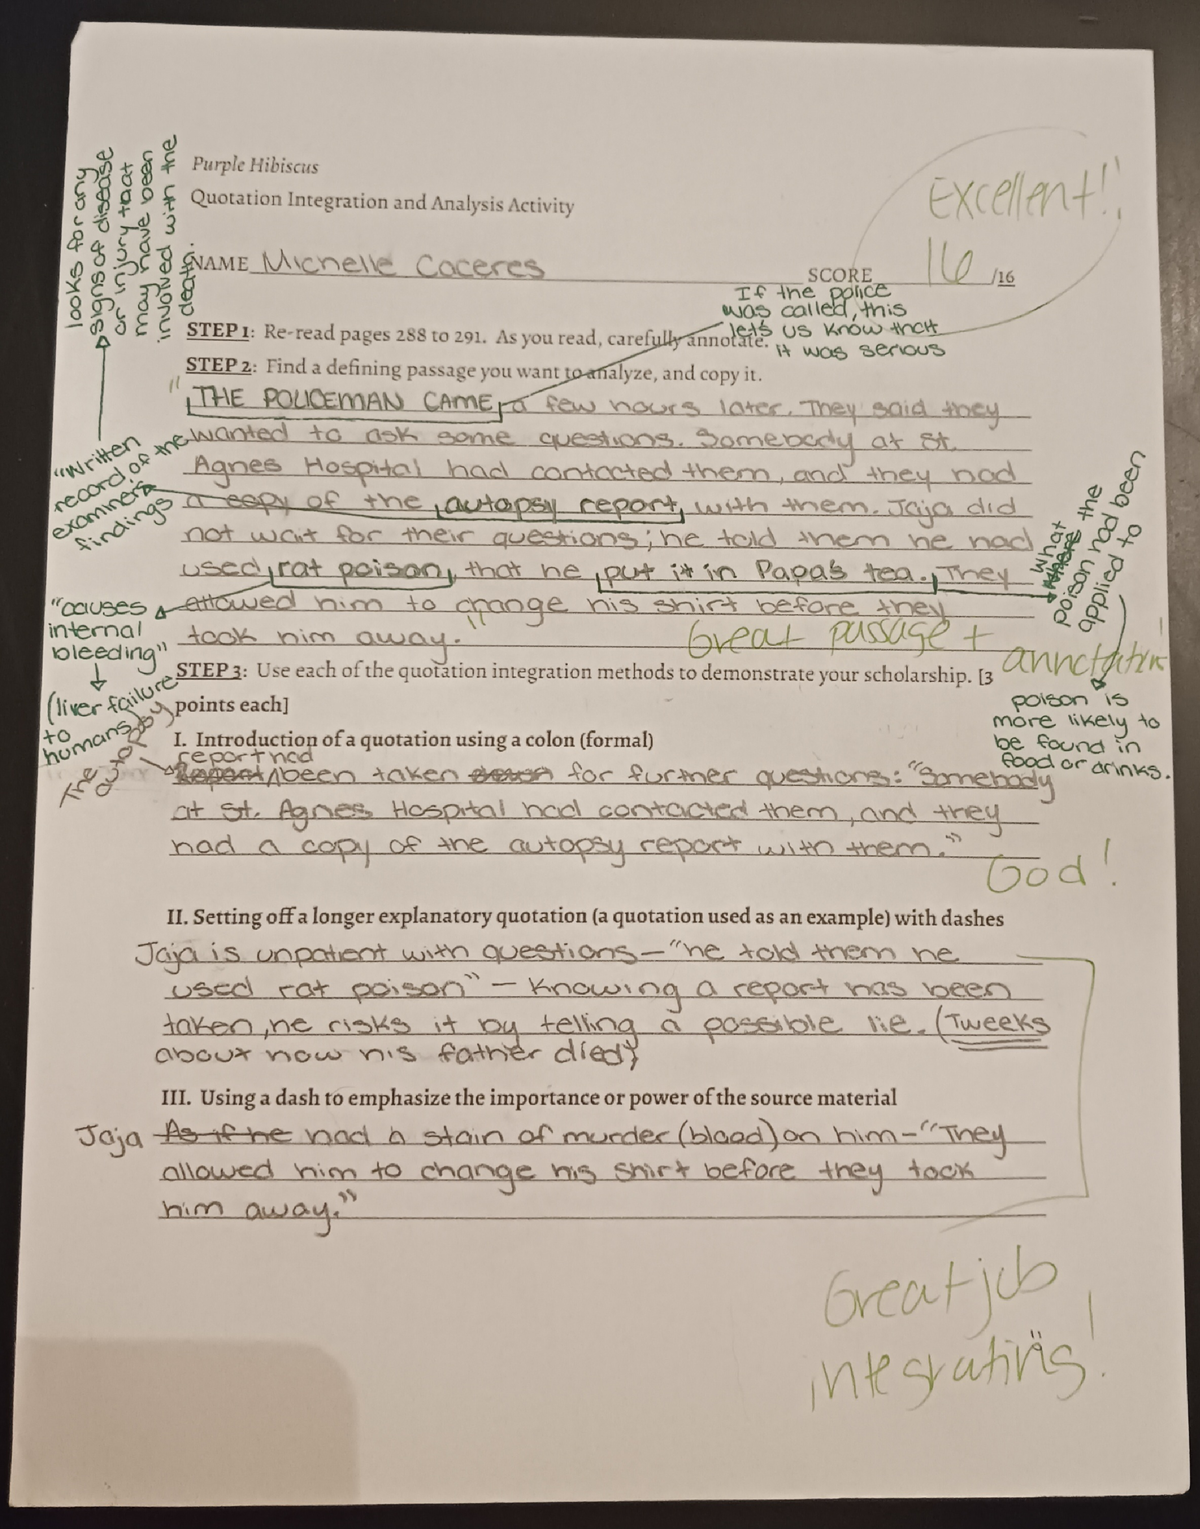 Purple Hibiscus
Quotation Integration and Analysis Activity
Excellent!!
NAME Michelle Caceres
SCORE 16 /16
looks for any
signs of disease
or injury that
may have been
involved with the
death.
If the police
was called, this
lets us know that
it was serious
STEP 1: Re-read pages 288 to 291. As you read, carefully annotate.
STEP 2: Find a defining passage you want to analyze, and copy it.
"THE POLICEMAN CAME, a few hours later. They said they
wanted to ask some questions. Somebody at St.
Agnes Hospital had contacted them, and they had
a copy of the autopsy report with them. Jaja did
not wait for their questions; he told them he had
used rat poison, that he put it in Papa's tea. They
allowed him to change his shirt before they
took him away."
"Written
record of the
examiner's
findings
"causes
internal
bleeding"
(liver failure
to
humans)
What
poison had been
applied to
poison is
more likely to
be found in
food or drinks.
Great passage +
annotation!
STEP 3: Use each of the quotation integration methods to demonstrate your scholarship. [3
points each]
I. Introduction of a quotation using a colon (formal)
The autopsy
report had
been taken for further questions: "Somebody
at St. Agnes Hospital had contacted them, and they
had a copy of the autopsy report with them."
God!
II. Setting off a longer explanatory quotation (a quotation used as an example) with dashes
Jaja is unpatient with questions—"he told them he
used rat poison" — Knowing a report has been
taken, he risks it by telling a possible lie. (Tweeks
about how his father died)
III. Using a dash to emphasize the importance or power of the source material
Jaja As if he had a stain of murder (blood) on him—"They
allowed him to change his shirt before they took
him away."
Great job
integrating!